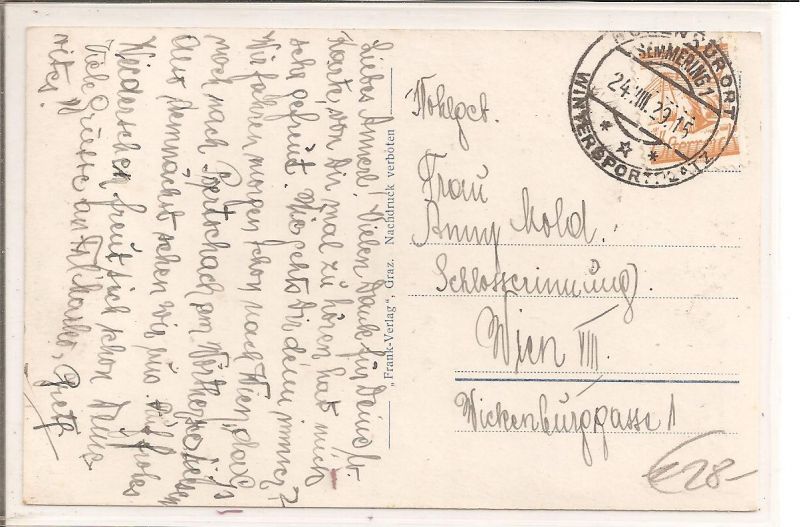 Liebes Annerl! Vielen Dank für Deine lb.
Karte, von Dir mal zu hören hat mich
sehr gefreut. Wie geht's Dir denn immer?
Wir fahren morgen schon nach Wien,
noch nach Pörtschach am Wörthersee.
Also demnächst sehen wir uns. Auf frohes
Wiedersehen freut sich schon Deine
Viele Grüsse an
"Frank-Verlag", Graz. Nachdruck verboten
HÖHENKURORT
SEMMERING 1
24.VIII.29.15
WINTERSPORTPLATZ
Wohlgeb.
Frau
Anny Mold.
Schlosserinnung.
Wien VIII
Wickenburggasse 1
€28-